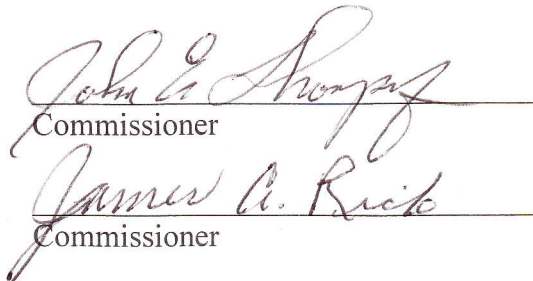 John E
Commissioner
James A. Rick
Commissioner